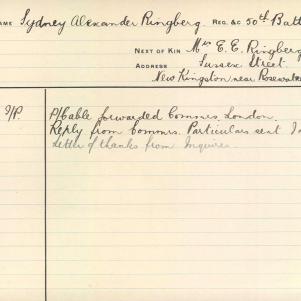 AME Sydney Alexander Ringberg. REG. &C 50th Batt
NEXT OF KIN Mrs E. E. Ringberg
ADDRESS Sussex Street.
New Kingston near Rosewater
I/P. P/Cable forwarded Commrs. London.
Reply from Commrs. Particulars sent I
Letter of thanks from Inquirer